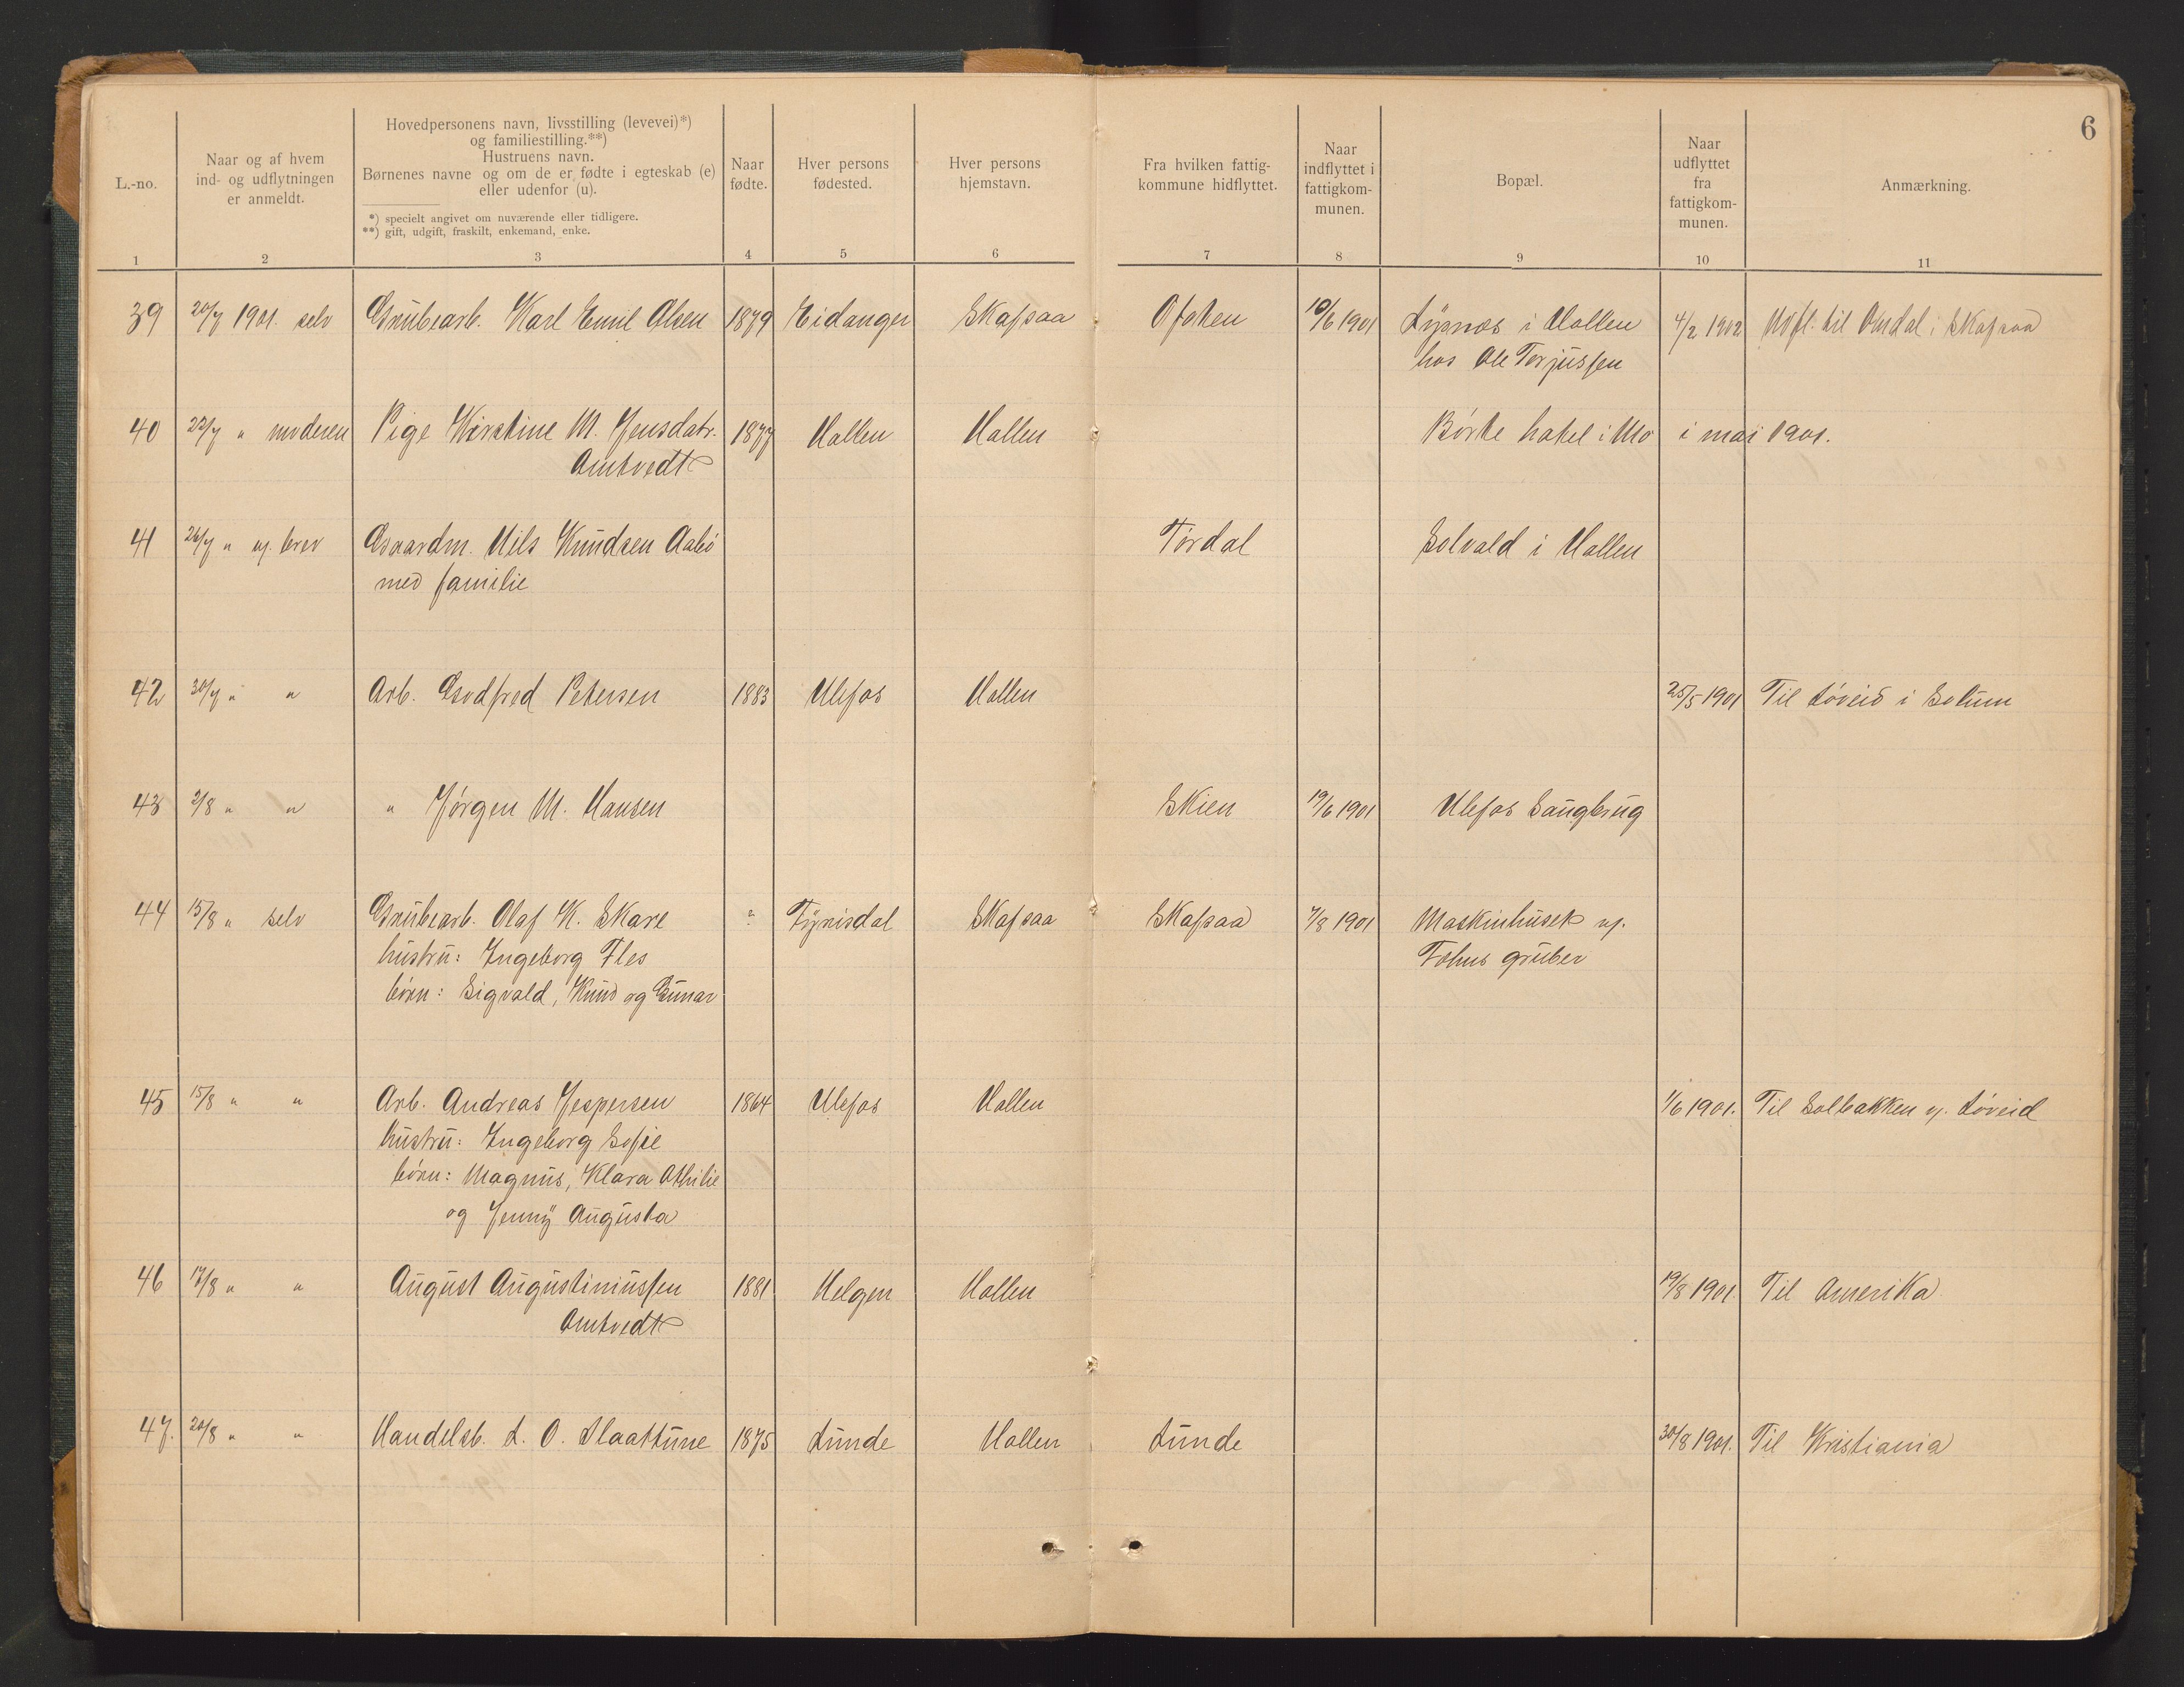 6
L.-no.
Naar og af hvem
ind- og udflytningen
er anmeldt.
Hovedpersonens navn, livsstilling (levevei)*)
og familiestilling.**)
Hustruens navn.
Børnenes navne og om de er fødte i egteskab (e)
eller udenfor (u).
*) specielt angivet om nuværende eller tidligere.
**) gift, udgift, fraskilt, enkemand, enke.
Naar
fødte.
Hver persons
fødested.
Hver persons
hjemstavn.
Fra hvilken fattig-
kommune hidflyttet.
Naar
indflyttet i
fattigkom-
munen.
Bopæl.
Naar
udflyttet
fra
fattigkom-
munen.
Anmærkning.
1 2 3 4 5 6 7 8 9 10 11
39 20/7 1901. selv Grubearb. Karl Emil Olsen 1879 Eidanger Skafsaa Ofoten 10/6 1901 Lysnæs i Hollen 4/2 1902 Udfl. til Omdal i Skafsaa
hos Ole Terjussen
40 22/7 " moderen Pige Kirstine M. Jensdatr. 1877 Hollen Hollen Børte hotel i Mo i mai 1901.
Omtvedt
41 26/7 " v. brev Gaardm. Nils Knudsen Aabø Tørdal Solvold i Hollen
med familie
42 30/7 " " Arb. Godfred Petersen 1883 Ulefos Hollen 25/5 1901 Til Løveid i Solum
43 2/8 " " " Jørgen M. Hansen Skien 19/6 1901 Ulefos Saugbrug
44 15/8 " selv Grubearb. Olaf K. Skare ? Fyrisdal Skafsaa Skafsaa 7/8 1901 Maskinhuset v.
hustru: Ingeborg Fles Fehns gruber
børn: Sigvald, Knud og Gunar
45 15/8 " " Arb. Andreas Jespersen 1864 Ulefos Hollen 1/6 1901. Til Solbakken v. Løveid
hustru: Ingeborg Sofie
børn: Magnus, Klara Othilie
og Jenny Augusta
46 17/8 " " August Augustinussen 1881 Helgen Hollen 19/8 1901. Til Amerika
Omtvedt
47. 20/8 " " Handelsb. L. O. Slaattune 1875 Lunde Hollen Lunde 30/8 1901. Til Kristiania